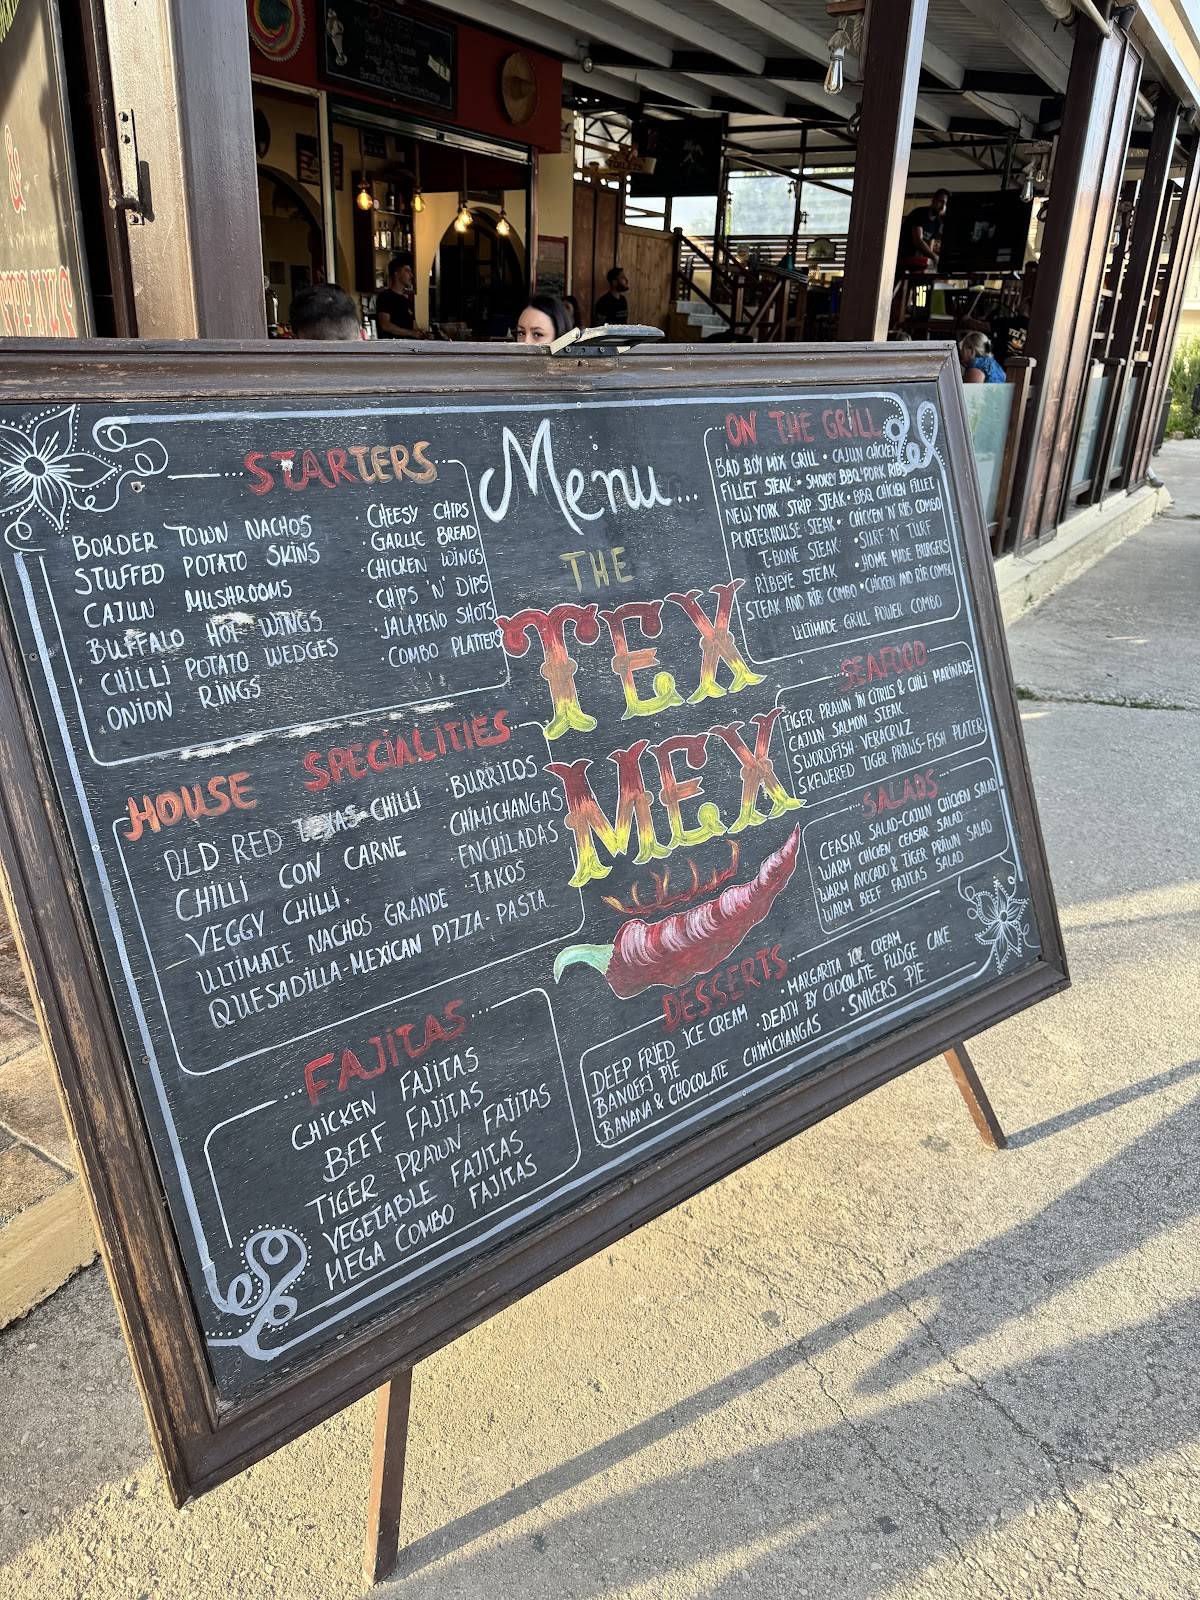 &
STEAKS
Menu...
THE
TEX
MEX
STARTERS
BORDER TOWN NACHOS
STUFFED POTATO SKINS
CAJUN MUSHROOMS
BUFFALO HOT WINGS
CHILLI POTATO WEDGES
ONION RINGS
· CHEESY CHIPS
GARLIC BREAD
· CHICKEN WINGS
· CHIPS 'N' DIPS
· JALAPENO SHOTS
· COMBO PLATTERS
HOUSE SPECIALITIES
OLD RED TEXAS CHILLI
CHILLI CON CARNE
VEGGY CHILLI.
ULTIMATE NACHOS GRANDE
QUESADILLA-MEXICAN PIZZA · PASTA
· BURRITOS
· CHIMICHANGAS
· ENCHILADAS
· TAKOS
FAJITAS
CHICKEN FAJITAS
BEEF FAJITAS
TIGER PRAWN FAJITAS
VEGETABLE FAJITAS
MEGA COMBO FAJITAS
ON THE GRILL
BAD BOY MIX GRILL · CAJUN CHICKEN
FILLET STEAK · SMOKEY BBQ PORK RIBS
NEW YORK STRIP STEAK · BBQ CHICKEN FILLET
PORTERHOUSE STEAK · CHICKEN 'N' RIB COMBO
T-BONE STEAK · SURF 'N' TURF
RIBEYE STEAK · HOME MADE BURGERS
STEAK AND RIB COMBO · CHICKEN AND RIB COMBO
ULTIMADE GRILL POWER COMBO
SEAFOOD
TIGER PRAWN IN CITRUS & CHILI MARINADE
CAJUN SALMON STEAK
SWORDFISH VERACRUZ
SKEWERED TIGER PRAWS-FISH PLATER
SALADS
CEASAR SALAD-CAJUN CHICKEN SALAD
WARM CHICKEN CEASAR SALAD
WARM AVOCADO & TIGER PRAWN SALAD
WARM BEEF FAJITAS SALAD
DESSERTS
DEEP FRIED ICE CREAM · MARGARITA ICE CREAM
BANOFFJ PIE · DEATH BY CHOCOLATE FUDGE CAKE
BANANA & CHOCOLATE CHIMICHANGAS · SNIKERS PIE